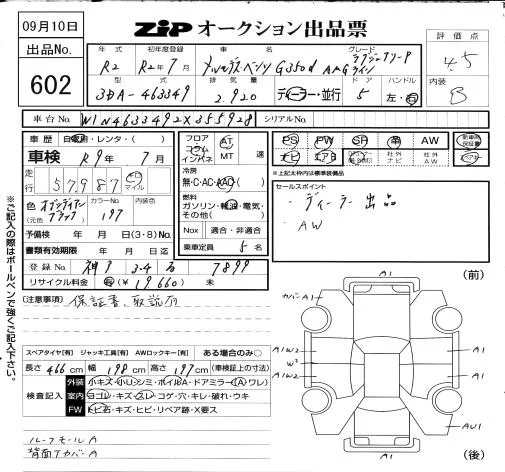 09月10日
ZIP オークション出品票
出品No. 602
評価点 4.5
内装 B
年式 初年度登録 車名 グレード
R2 R2年7月 メルセデス・ベンツ G350d AMGラグジュアリーP
型式 排気量 ドア ハンドル
3DA-463349 2.920 ディーラー・並行 5 左・右
車台No. W1N4633492X355928 シリアルNo.
車歴 自家用・レンタ・( )
車検 R9年7月
走行 57987 km マイル
色 (元色) オブシディアンブラック カラーNo. 197 内装色
予備検 年 月 日(3・8)No.
書類有効期限 年 月 日迄
登録No. 神戸 344 る 7899
リサイクル料金 有(¥19,660) 未
フロア コラム インパネ AT MT 速
冷房 無・C・AC・AAC・( )
燃料 ガソリン・軽油・電気・その他( )
Nox 適合・非適合
乗車定員 5名
PS PW SR 革 AW 新車時保証書
ナビ エアB 社外ナビ 社外AW
※上記太枠内は標準装備品
セールスポイント
・ディーラー出品
・AW
(注意事項) 保証書、取説有
スペアタイヤ[有] ジャッキ工具[有] AWロックキー[有] ある場合のみ○
長さ466cm 幅198cm 高さ197cm (車検証上の寸法)
検査記入
外装 小キズ・小凹・シミ・ボイルA・ドアミラー(A・ワレ)
室内 ヨゴレ・キズ・スレ・コゲ・穴・キレ・破れ・ウキ
FW トビ石・キズ・ヒビ・リペア跡・X要ス
ルーフモールA
背面タイヤカバーA
(前)
A1
カバーA1 A1
A1W2 A1
W2
A1W2 A1
AU1
A1
(後)
※ご記入の際はボールペンで強くご記入下さい。